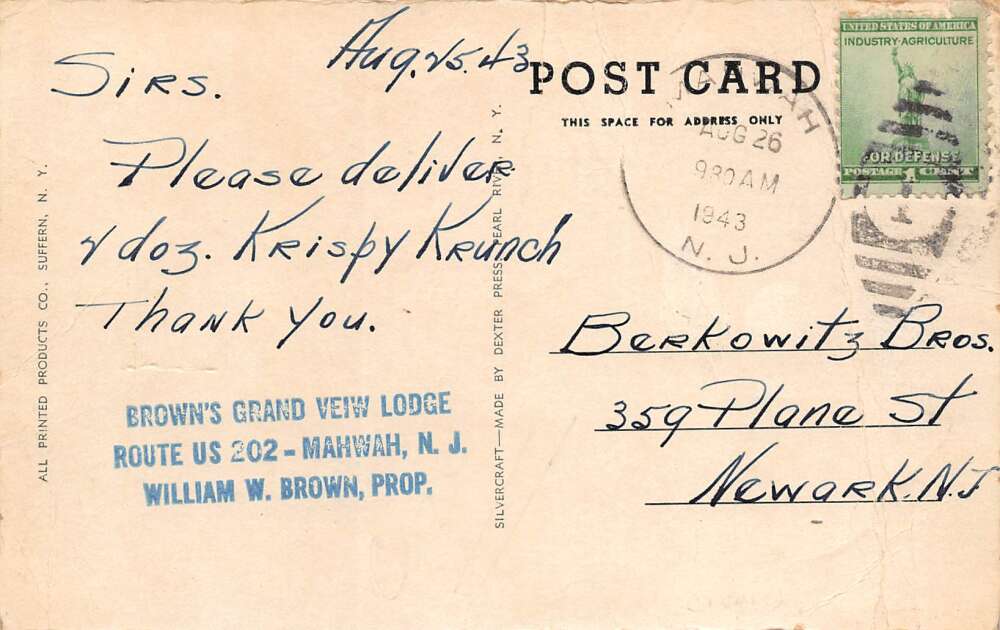 Aug. 25. 43
Sirs.
Please deliver
2 doz. Krispy Krunch
Thank you.
BROWN'S GRAND VEIW LODGE
ROUTE US 202 - MAHWAH, N. J.
WILLIAM W. BROWN, PROP.
ALL PRINTED PRODUCTS CO., SUFFERN, N. Y.
SILVERCRAFT—MADE BY DEXTER PRESS, PEARL RIVER, N. Y.
POST CARD
THIS SPACE FOR ADDRESS ONLY
MAHWAH
AUG 26
930 AM
1943
N. J.
UNITED STATES OF AMERICA
INDUSTRY·AGRICULTURE
FOR DEFENSE
POSTAGE 1 CENT
Berkowitz Bros.
359 Plane St
Newark. N.J